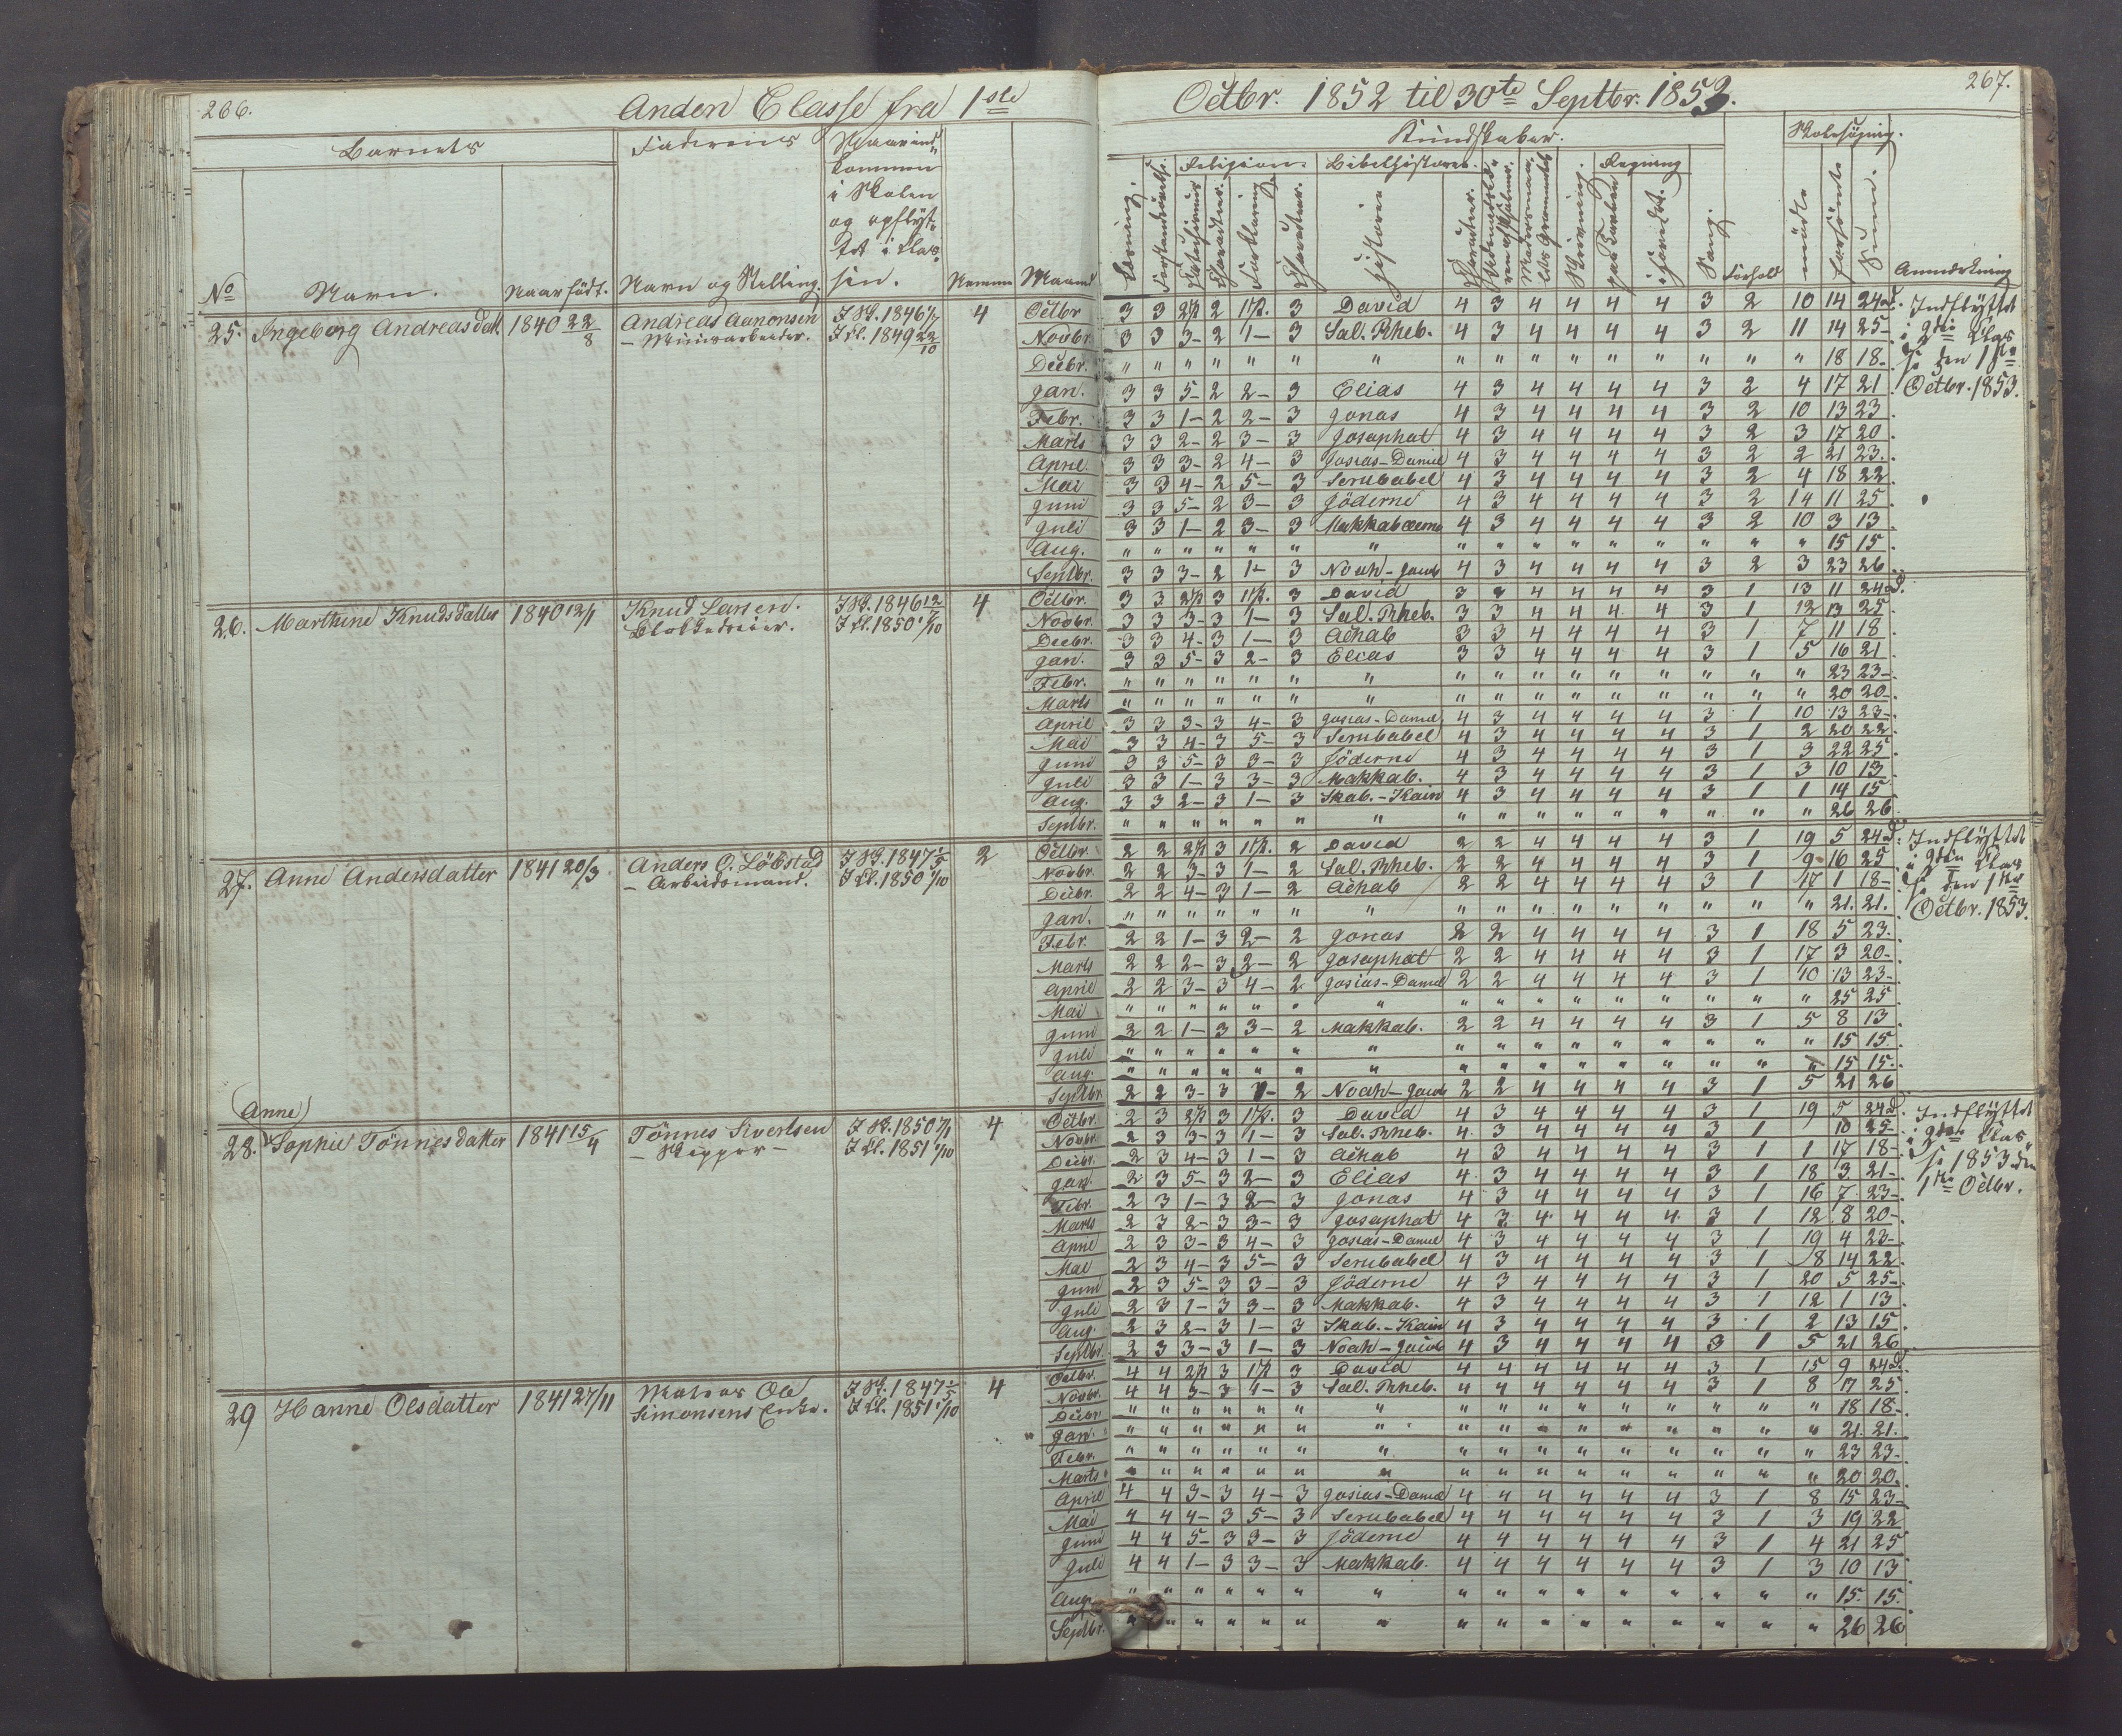 266.
Anden Classe fra 1ste
Octbr. 1852 til 30te Septbr. 1853.
267.
Barnets
Faderens
Naar ind-
kommen
i Skolen
og opflyt-
tet i Clas-
sen.
No
Navn.
Naar født.
Navn og Stilling.
Nemme
Maaned
Kundskaber.
Skolesøgning.
Religion.
Bibelhistorie.
Regning
Læsning.
Historie
Skrivning.
paa Tavlen
i Hovedet.
Sang.
Forhold
mødte
forsømte
Sum.
Anmærkning
25. Ingeborg Andreasdatt. 1840 22/8
Andreas Aanonsen
I Sk. 1846
I Cl. 1849 22/10
4
Octbr 3 3 2 1 3 David 4 3 4 4 4 4 3 2 10 14 24 d.
Novbr. 3 3 3- 2 1- 3 Sal. Rheb. 4 3 4 4 4 4 3 2 11 14 25-
Decbr. " " " " " " " " " " " " " " " " 18 18-
Jan. 3 3 5- 2 2- 3 Elias 4 3 4 4 4 4 3 2 4 17 21
Febr. 3 3 1- 2 2- 3 Jonas 4 3 4 4 4 4 3 2 10 13 23
Marts 3 3 2- 2 3- 3 Josaphat 4 3 4 4 4 4 3 2 3 17 20
April. 3 3 3- 2 4- 3 Josias-Daniel 4 3 4 4 4 4 3 2 2 21 23.
Mai 3 3 4- 2 5- 3 Serubabel 4 3 4 4 4 4 3 2 4 18 22
Juni 3 3 5- 2 3- 3 Jöderne 4 3 4 4 4 4 3 2 14 11 25
Juli 3 3 1- 2 3- 3 Makkabæerne 4 3 4 4 4 4 3 2 10 3 13
Aug. " " " " " " " " " " " " " " " " 15 15
Septbr. 3 3 3- 2 1- 3 Noah-Jacob 4 3 4 4 4 4 3 2 3 23 26
Indflyttet
i 2den Clas
se den 1ste
Octbr. 1853.
26. Marthine Knudsdatter 1840 12/1
Knud Larsen.
Blokkedreier.
I Sk. 1846 12/7
I Cl. 1850 1/10
4
Octbr. 3 3 3 3 David 3 3 4 4 4 4 3 1 13 11 24 d.
Novbr. 3 3 3- 3 1- 3 Sal. Rheb. 3 3 4 4 4 4 3 1 12 13 25
Decbr. 3 3 4- 3 1- 3 Achab 3 3 4 4 4 4 3 1 7 11 18
Jan. 3 3 5- 3 2- 3 Elias 3 3 4 4 4 4 3 1 5 16 21
Febr. " " " " " " " " " " " " " " " " 23 23-
Marts " " " " " " " " " " " " " " " " 20 20-
April 3 3 3- 3 4- 3 Josias-Daniel 4 3 4 4 4 4 3 1 10 13 23-
Mai 3 3 4- 3 5- 3 Serubabel 4 3 4 4 4 4 3 1 2 20 22
Juni 3 3 5- 3 3- 3 Jöderne 4 3 4 4 4 4 3 1 3 22 25
Juli 3 3 1- 3 3- 3 Makkab. 4 3 4 4 4 4 3 1 3 10 13
Aug. 3 3 2- 3 1- 3 Skab.-Kain 4 3 4 4 4 4 3 1 1 14 15
Septbr. " " " " " " " " " " " " " " " " 26 26
27. Anne Andersdatter 1841 20/3
Anders O. Löbstad
- Arbeidsmand.
I Sk. 1847 1/5
I Cl. 1850 1/10
2
Octbr. 2 2 3 2 David 2 2 4 4 4 4 3 1 19 5 24 d.
Novbr. 2 2 3- 3 1- 2 Sal. Rheb. 2 2 4 4 4 4 3 1 9 16 25
Decbr. 2 2 4- 3 1- 2 Achab 2 2 4 4 4 4 3 1 17 1 18-
Jan. " " " " " " " " " " " " " " " " 21. 21.
Febr. 2 2 1- 3 2- 2 Jonas 2 2 4 4 4 4 3 1 18 5 23.
Marts 2 2 2- 3 2- 2 Josaphat 2 2 4 4 4 4 3 1 17 3 20-
April 2 2 3- 3 4- 2 Josias-Daniel 2 2 4 4 4 4 3 1 10 13 23-
Mai " " " " " " " " " " " " " " " " 25 25
Juni 2 2 1- 3 3- 2 Makkab. 2 2 4 4 4 4 3 1 5 8 13
Juli " " " " " " " " " " " " " " " " 15 15.
Aug. " " " " " " " " " " " " " " " " 15 15.
Septbr 2 2 3- 3 1- 2 Noah-Jacob 2 2 4 4 4 4 3 1 5 21 26
Indflyttet
i 2den Clas
se den 1ste
Octbr. 1853.
(Anne)
28. Sophie Tönnesdatter 1841 15/4
Tönnes Sivertsen
- Skipper -
I Sk. 1850
I Cl. 1851 1/10
4
Octbr. 2 3 3 3 David 4 3 4 4 4 4 3 1 19 5 24 d.
Novbr. 2 3 3- 3 1- 3 Sal. Rheb. 4 3 4 4 4 4 3 1 10 25
Decbr. 2 3 4- 3 1- 3 Achab 4 3 4 4 4 4 3 1 1 17 18-
Jan. 2 3 5- 3 2- 3 Elias 4 3 4 4 4 4 3 1 18 3 21-
Febr. 2 3 1- 3 2- 3 Jonas 4 3 4 4 4 4 3 1 16 7 23-
Marts 2 3 2- 3 3- 3 Josaphat 4 3 4 4 4 4 3 1 12 8 20-
April 2 3 3- 3 4- 3 Josias-Daniel 4 3 4 4 4 4 3 1 19 4 23-
Mai 2 3 4- 3 5- 3 Serubabel 4 3 4 4 4 4 3 1 8 14 22
Juni 2 3 5- 3 3- 3 Jöderne 4 3 4 4 4 4 3 1 20 5 25-
Juli 2 3 1- 3 3- 3 Makkab. 4 3 4 4 4 4 3 1 12 1 13
Aug. 2 3 2- 3 1- 3 Skab.-Kain 4 3 4 4 4 4 3 1 2 13 15
Septbr. 2 3 3- 3 1- 3 Noah-Jacob 4 3 4 4 4 4 3 1 5 21 26
Indflyttet
i 2den Clas
se 1853 den
1ste Octbr.
29 Hanne Olsdatter 1841 27/11
Matros Ole
Simonsens Enke.
I Sk. 1847 1/5
I Cl. 1851 1/10
4
Octbr. 4 4 3 3 David 4 4 4 4 4 4 3 1 15 9 24 d.
Novbr. 4 4 3- 3 1- 3 Sal. Rheb. 4 4 4 4 4 4 3 1 8 17 25
Decbr " " " " " " " " " " " " " " " " 18 18-
Jan. " " " " " " " " " " " " " " " " 21. 21.
Febr. " " " " " " " " " " " " " " " " 23 23-
Marts " " " " " " " " " " " " " " " " 20 20.
April 4 4 3- 3 4- 3 Josias-Daniel 4 4 4 4 4 4 3 1 8 15 23-
Mai 4 4 4- 3 5- 3 Serubabel 4 4 4 4 4 4 3 1 3 19 22
Juni 4 4 5- 3 3- 3 Jöderne 4 4 4 4 4 4 3 1 4 21 25
Juli 4 4 1- 3 3- 3 Makkab. 4 4 4 4 4 4 3 1 3 10 13
Aug. " " " " " " " " " " " " " " " " 15. 15.
Septbr. " " " " " " " " " " " " " " " " 26 26